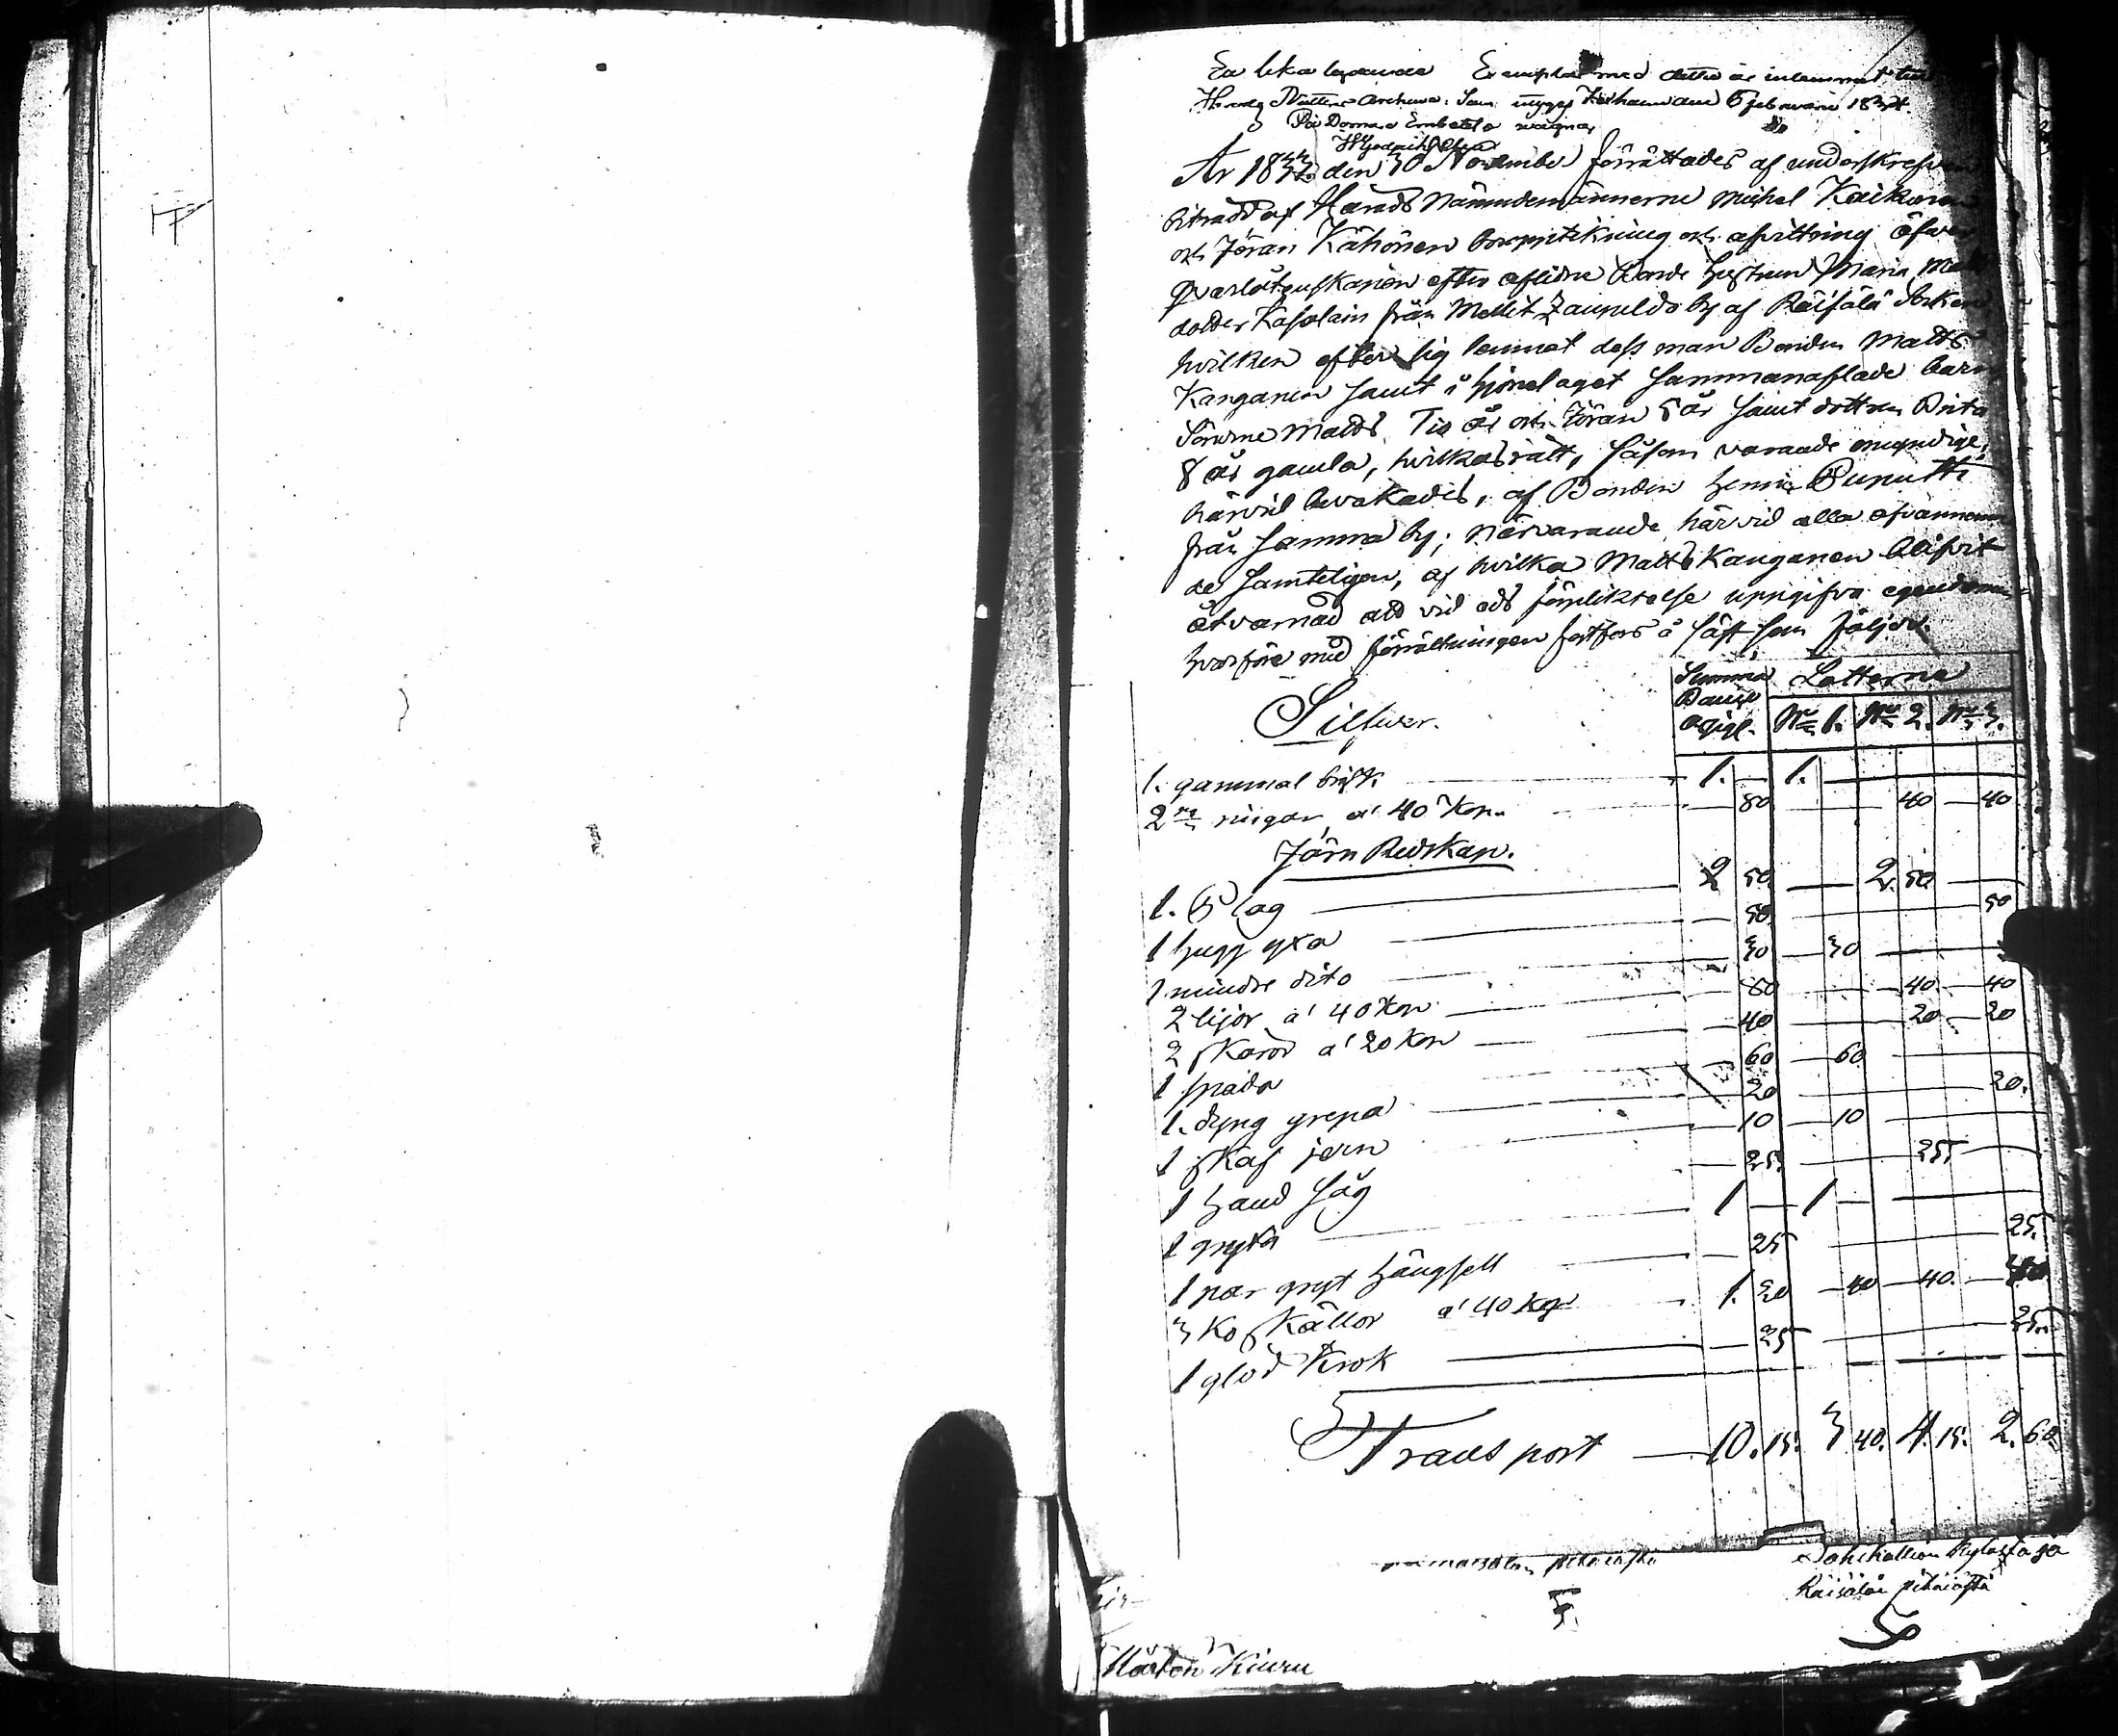 En lika lydande Exemplar med detta är inlemnat till
Härads Rättens Archiva; Som intygas Kexholm den 6 februarii 1834.
På Domare Embetets vägnar
År 1833 den 30 November förrättades af undorskrefven
biträdd af Härads Nämndemännerne Michel Kaikonen
och Jöran Kähönen bouppteckning och afvittring öfver
Qvarlåtenskapen efter aflidne Bonde Hustrun Maria Matts
dotter Kasolain från Mellet by af Räisälä Socken
hvilken efter sig lemnat dess man Bonden Matts
Kanganen samt i hjonelaget sammanaflade barn
Sönerne Matts Tio år och Jöran 5 år samt dottren Brita
8 år gamla, hvilkas rätt, såsom varande omyndige,
härvid bevakades, af Bonden Henric Pupultti
från samma by; Närvarande härvid alla ofvannämn
de samteligen, af hvilka Matts Kanganen blifvit
åtvarnad att vid eds förpliktelse uppgifva egendomen
hvarföre med förrättningen fortfors å sätt som följer.
Summa Banco Assign. Lotterne
Silfwer. No 1. No 2. No 3.
1. gammal brisk. 1. 1.
2ne ringar a' 40 Kop. 80 40 40
Järn Redskap.
1. Plog 2 50. 2. 50
1 hugg yxa 50. 50
1 mindre dito 30 30
2 lijor a' 40 Kop 80 40 40
2 skäror a' 20 Kop 40 20 20
1 spada 60 60
1. dyng grepa 20 20.
1 skaf jern 10 10
1 Hand såg 25. 25
1 gryta 1 1
1 par gryt hängsell 25 25.
3 Ko skällor a' 40 Kop 1. 20 40 40. 40
1 glöd Krok 25 25
Transport 10. 15. 3 40. 4. 15. 2. 60
pitäjästä
Sohikallion kylästä ja
Räisälän pitäjästä
F.
Mårten Kiuru